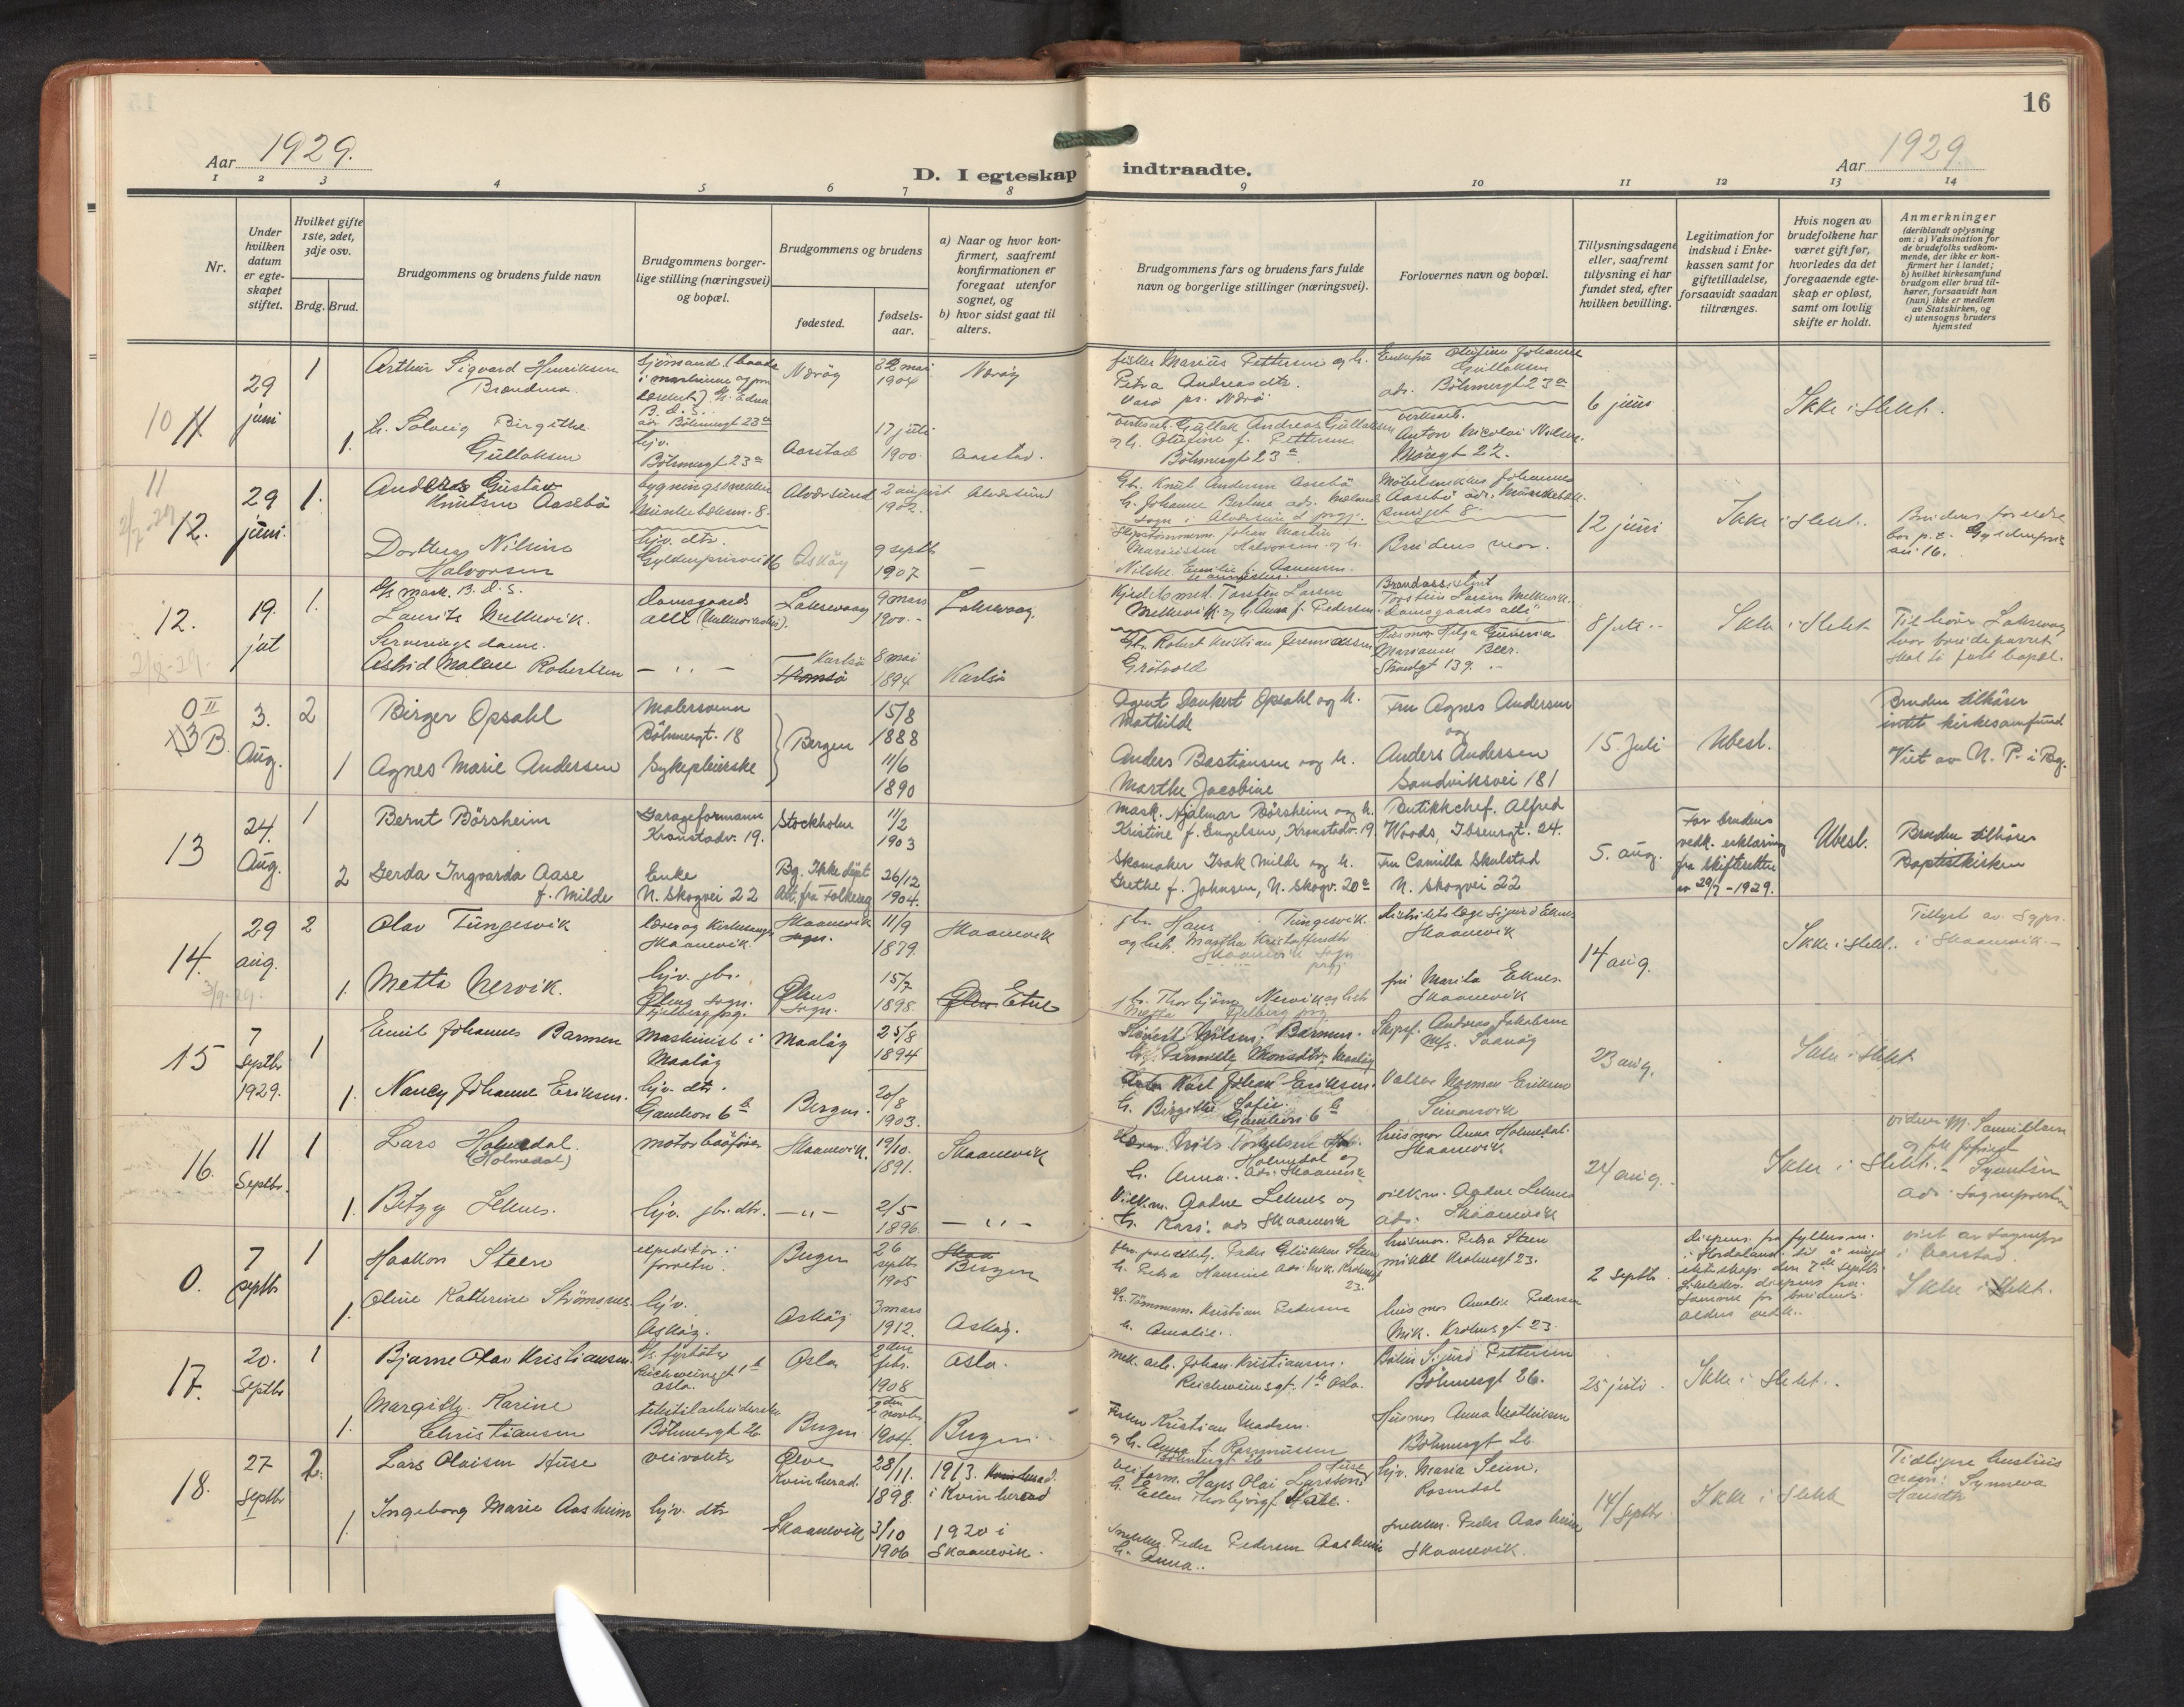 16
Aar 1929.
Aar 1929
D. I egteskap indtraadte.
1 2 3 4 5 6 7 8 9 10 11 12 13 14
Nr.
Under hvilken datum er egte-skapet stiftet.
Hvilket gifte 1ste, 2det, 3dje osv.
Brdg. Brud.
Brudgommens og brudens fulde navn
Brudgommens borger-lige stilling (næringsvei) og bopæl.
Brudgommens og brudens
fødested.
fødsels-aar.
a) Naar og hvor kon-firmert, saafremt konfirmationen er foregaat utenfor sognet, og
b) hvor sidst gaat til alters.
Brudgommens fars og brudens fars fulde navn og borgerlige stillinger (næringsvei).
Forlovernes navn og bopæl.
Tillysningsdagene eller, saafremt tillysning ei har fundet sted, efter hvilken bevilling.
Legitimation for indskud i Enke-kassen samt for giftetilladelse, forsaavidt saadan tiltrænges.
Hvis nogen av brudefolkene har været gift før, hvorledes da det foregaaende egte-skap er opløst, samt om lovlig skifte er holdt.
Anmerkninger
(deriblandt oplysning om: a) Vaksination for de brudefolks vedkom-mende, der ikke er kon-firmert her i landet; b) hvilket kirkesamfund brudgom eller brud til-hører, forsaavidt han (hun) ikke er medlem av Statskirken, og c) utensogns bruders hjemsted
10 11
29 juni
1
Arthur Sigvard Henriksen
Nærøy
22 mai 1904
Nærøy
fisker Marius Pettersen og h.
Petra Andreasdtr.
Enkefru Olufine Johanne
Gullaksen
adr. Böhmergt 23a
6 juni
Ikke i slekt.
1.
h. Solveig Birgithe
Gullaksen
hjv.
Böhmergt 23a
Aarstad
17 juli 1900
Aarstad.
Gullak Andreas Gullaksen
og h. Olufine f. Pettersen
Böhmergt 23a.
Anton Nicolai Nilsen.
Møregt 22.
11
12.
29 juni.
1.
Anders Gustav
Knutsen Aasebö
Alversund
2 august 1902.
Alversund
Gbr. Knut Andersen Aasebö
h. Johanne Bertine
Johannes
Aasebö adr.
12 juni
Ikke i slekt.
Brudens foreldre
bor p.t. Gyldenpris
Dorthea Nilsine
Halvorsen
hjv. dtr.
Gyldenprisvei 16
Askøy
9 septb 1907
Brudens mor.
12.
2/8-29.
19. juli
1.
mask. B.D.S.
Laurits Mellevik.
Damsgaards alle
Laksevaag
9 mars 1900.
Laksevaag.
Torstein Larsen
Mellevik og h. Anna f. Pedersen
Brandassistent
Torstein Larsen Mellevik.
Damsgaards alle
8 juli
Ikke i slekt
Tilhører Laksevaag
hvor brudeparret
skal ta fast bopæl.
Serverings dame.
Astrid Malene Robertsen
— " —
Karlsø
Tromsø
8 mai 1894
Karlsø
Gbr. Robert Kristian Jeremiassen
Grötvold
Marianne Beer.
Strandgt 139.
0 II
13 B.
3. Aug.
2
Birger Opsahl
Malersvenn
Böhmergt. 18
Bergen
15/8 1888
Agent Dankert Opsahl og h.
Mathilde
Fru Agnes Andersen
og
15. Juli
Ubesl.
Bruden tilhører
intet kirkesamfund
Viet av N. P. i Bg.
1
Agnes Marie Andersen
Sykepleierske
11/6 1890
Anders Bastiansen og h.
Marthe Jacobine
Anders Andersen
Sandviksvei 181
13
24. Aug.
1
Bernt Börsheim
Garageformann
Kronstadv. 19.
Stockholm
11/2 1903
Mask. Hjalmar Börsheim og h.
Kristine f. Engelsen, Kronstadv. 19
Butikkchef. Alfred
Woods, Ibsensgt. 24.
5. aug.
For brudens
vedk. erklæring
fra skifteretten
av 29/7-1929.
Ubesl.
Bruden tilhører
Baptistkirken
2
Gerda Ingvarda Aase
f. Milde
Enke
N. Skogvei 22
Bg. Ikke døpt
Att. fra Folkereg
26/12 1904.
Skomaker Isak Milde og h.
Grethe f. Johnsen, N. Skogv. 20a
Fru Camilla Skulstad
N. Skogvei 22
14.
3/9-29.
29 aug.
2
Olav Tungesvik
lærer og Kirkesanger
Skaanevik
Skaanevik sogn.
11/9 1879.
Skaanevik
gbr. Hans Tungesvik
Martha Kristoffersdtr
Skaanevik sogn
Distriktslæge Sigurd Eknes
Skaanevik
14 aug.
Ikke i slekt.
Tillyst av sgpr.
i Skaanevik.
1.
Metta Nervik.
hjv. gbr.
Ølens sogn.
Fjelberg prg.
Ølens sogn.
15/7 1898.
Etne
gbr. Thorbjørn Nervik
Metta Fjelberg prg
fru Marita Eknes
Skaanevik
15
7 septbr 1929.
1
Emil Johannes Barmen
Maskinist i
Maaløy
Maaløy
25/8 1894
Barmen.
Skipsf. Andreas Jakobsen
23 aug.
Ikke i slekt
1.
Nancy Johanne Eriksen.
hjv. dtr.
Gamleon 6b
Bergen.
20/8 1903.
Karl Johan Eriksen.
h. Birgitte Sofie.
Gamleon 6b
Valter Norman Eriksen
Simonsvik
16.
11 Septbr.
1
Lars Holmedal.
(Holmedal)
motorbaatfører
Skaanevik.
19/10. 1891.
Skaanevik
Nils Torkelsen
Holmedal og
h. Anna. adr. Skaanevik
husmor Anna Holmedal.
Skaanevik.
24 aug.
Ikke i slekt.
1.
Betzy Leknes.
hjv. gbr. dtr.
— " —
2/5 1896.
— " —
Aadne Leknes og
h. Kari. adr Skaanevik
Aadne Leknes
adr. Skaanevik
0.
7 septbr
1
Haakon Steen
expeditør i
forretn.
Bergen
26 septbr 1905
Bergen
Peder Steen
h. Petra Hansine
husmor. Petra Steen
mikkel Krohnsgt 23.
2 septbr.
dispens. fra fylkesm.
i Hordaland
viet av sogneprs
i Aarstad.
Ikke i slekt.
1.
Oline Katherine Strömsnes.
hjv.
Askøy.
Askøy
3 mars 1912.
Askøy.
Tömmerm. Kristian Pedersen
h. Amalie.
husmor Amalie Pedersen
Mik. Krohnsgt 23.
17.
20. Septbr
1
Bjarne Olav Kristiansen.
fyrbøter
Oslo.
Oslo
febr. 1908
Oslo.
Mek. arb. Johan Kristiansen.
Reichweinsgt. 1b Oslo.
Sigurd Pettersen
Böhmergt 26.
25 juli
Ikke i slekt.
1.
Margith Karine
Christiansen
tekstilarbeiderske
Böhmergt 26
Bergen
2den novbr. 1904.
Bergen
Kristian Madsen.
og h. Anna f. Rasmussen
Böhmergt 26
Husmor Anna Mathiesen
Böhmergt 26.
18.
27 septbr
2.
Lars Olaisen Huse
veivokter
Ølve
Kvinherad.
28/11. 1898.
1913.
i Kvinherad
veiform. Hans Olai Larssen Huse
hjv. Maria Seim.
Rosendal
14/septbr
Ikke i slekt
Tidligere hustrus
navn: Synneva
Hansdtr
1.
Ingeborg Marie Aasheim
hjv. dtr
Skaanevik
3/10 1906
1920 i
Skaanevik.
Snekker. Peder Pedersen Aasheim
h. Anna.
snekker. Peder Aasheim
Skaanevik.